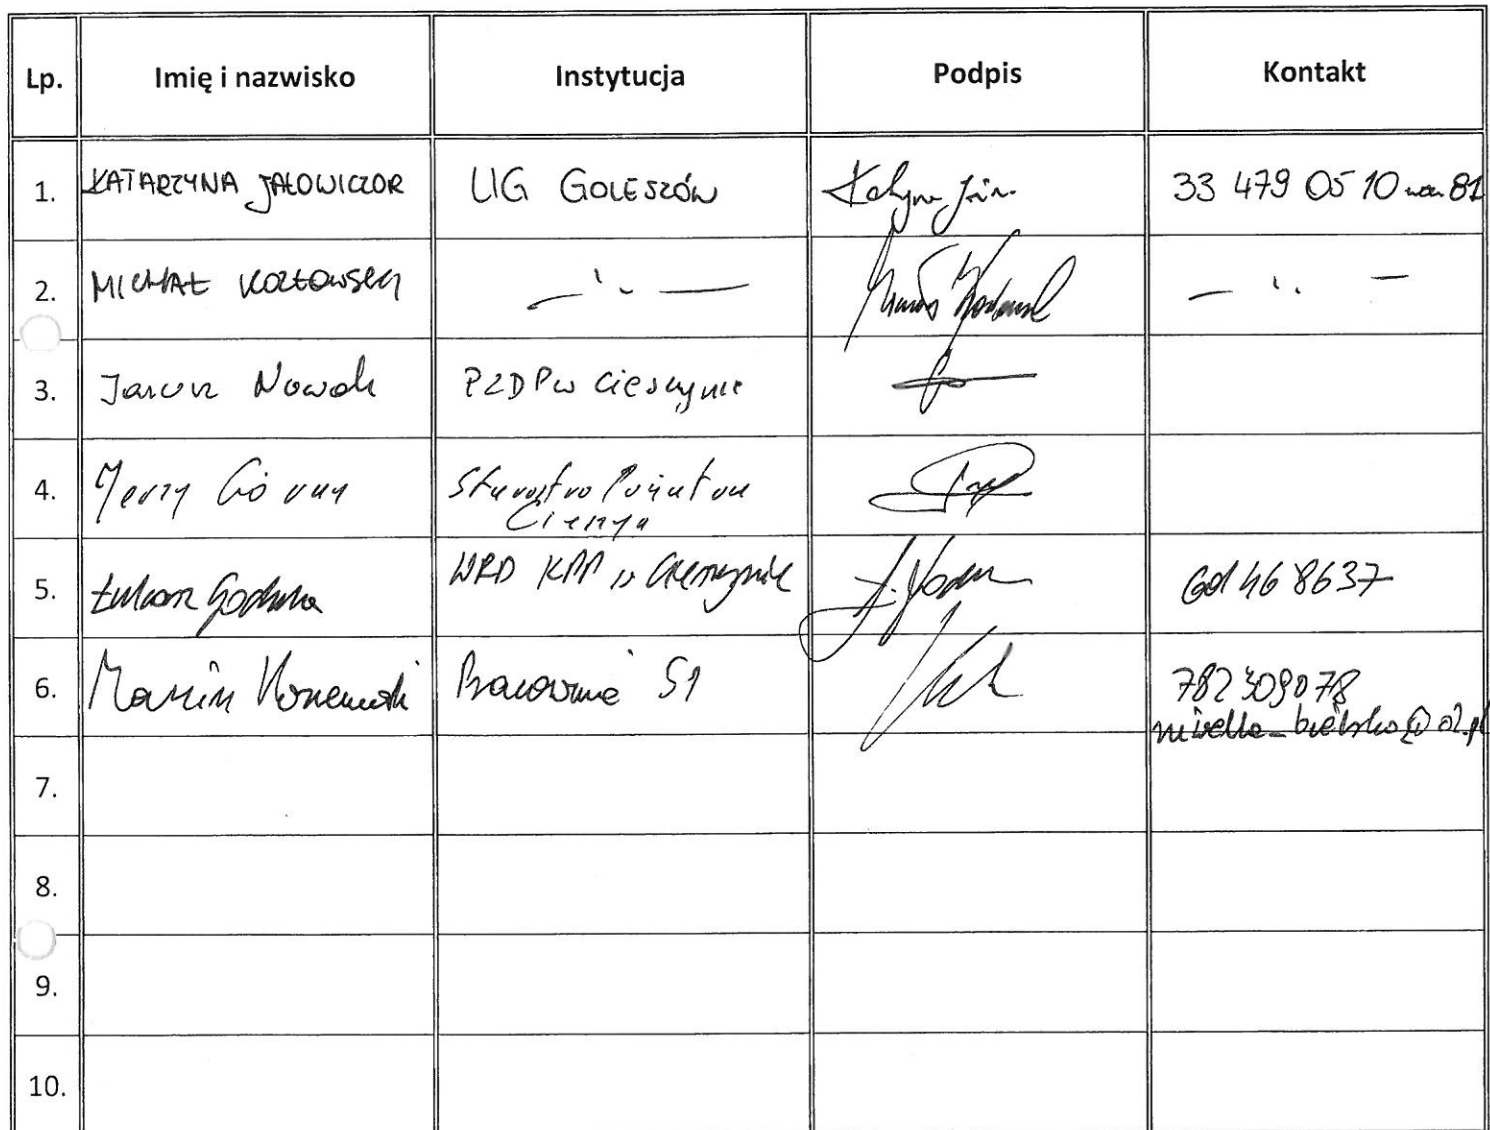 Lp. Imię i nazwisko Instytucja Podpis Kontakt
1. KATARZYNA JAŁOWICZOR UG GOLESZÓW 33 479 05 10 wew. 81
2. MICHAŁ KOZŁOWSKI — " — — " —
3. Janusz Nowak PZDP w Cieszynie
4. Jerzy Górny Starostwo Powiatowe
Cieszyn
5. Łukasz Godula WRD KPP w Cieszynie
6. Marcin Pracownia S1 782309078
7.
8.
9.
10.